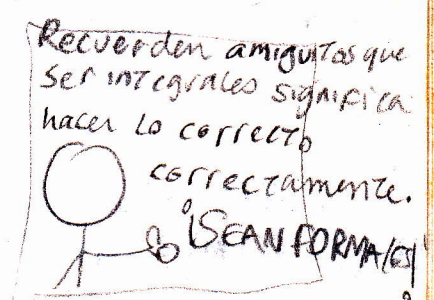 Recuerden amiguitos que
ser integrales significa
hacer lo correcto
correctamente.
¡SEAN FORMA/ES!